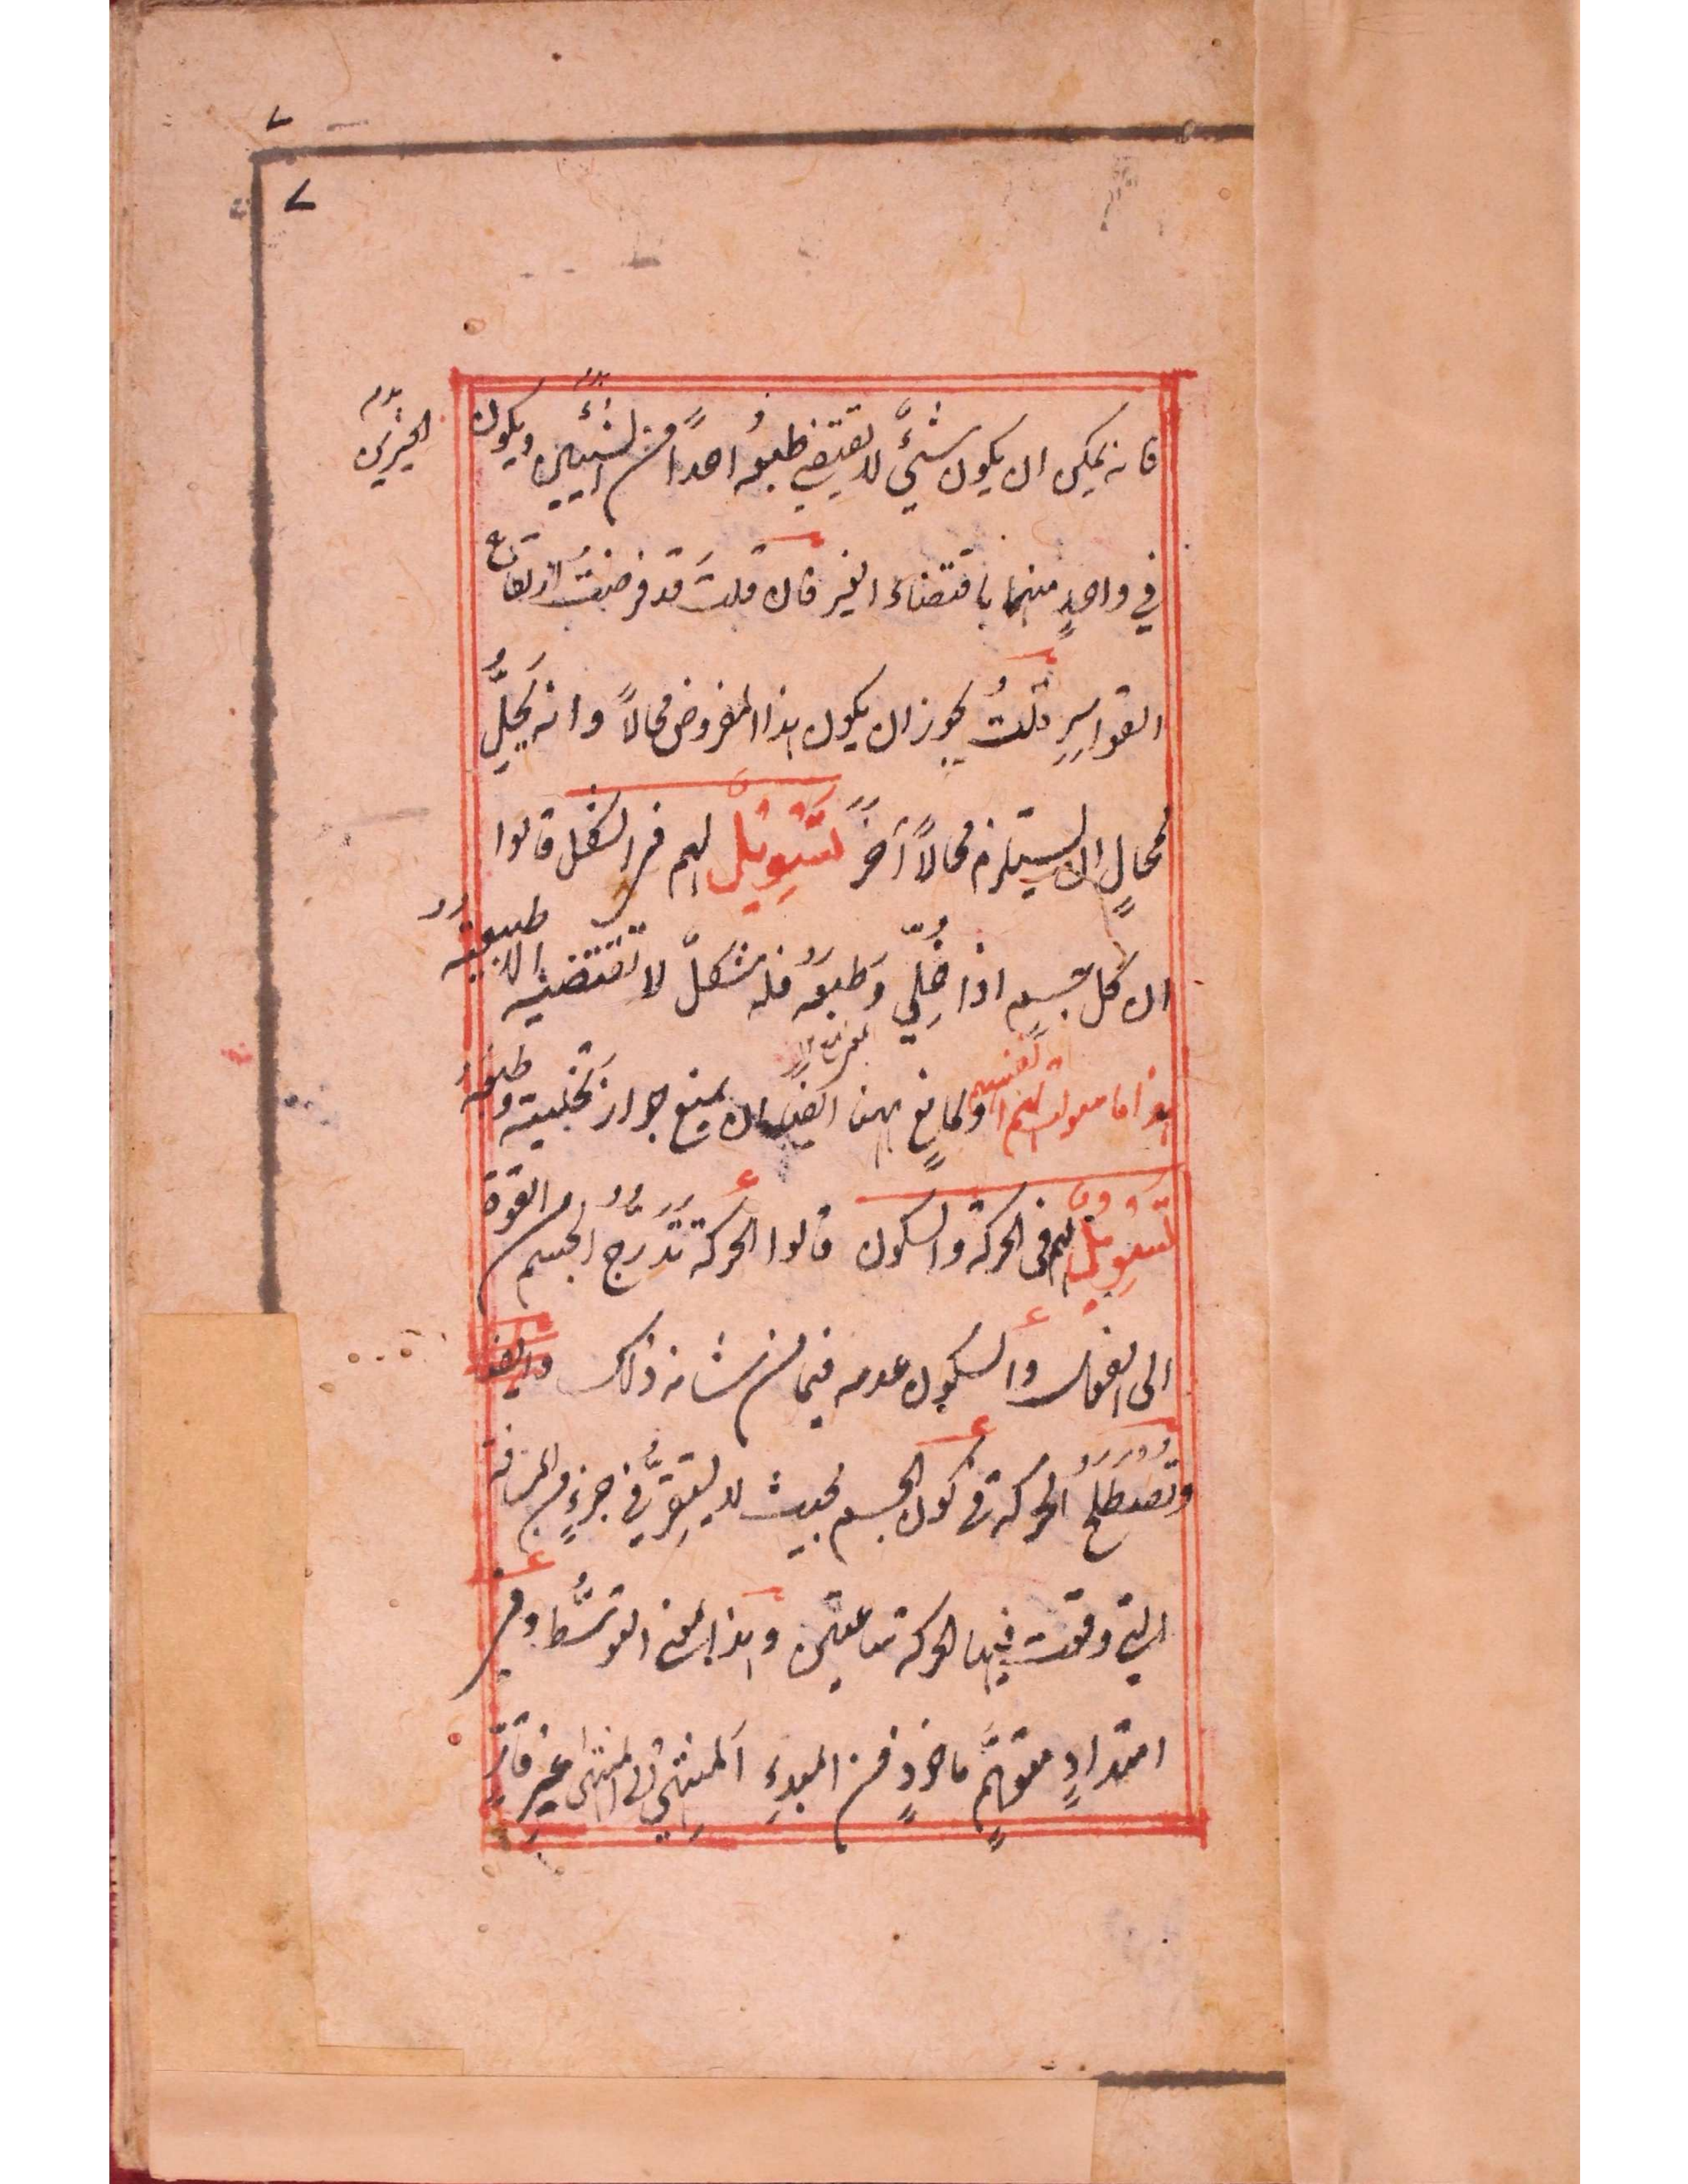 ٧
٧
فانه يمكن ان يكون شيءٌ لا يقتضي طبعُه احداً من الشيئين ويكون
الحيزين
في واحدٍ منهما باقتضاء الغير فان قلتَ قد فرضتُ ارتفاع
القواسرِ قلتُ يجوز ان يكون هذا المفروض محالاً وانه يحيلُ
محالٍ ان يستلزم محالاً آخرَ تسويلٌ لهم في الشكل قالوا
ان كل جسمٍ اذا خُلِّي وطبعَه فله شكلٌ لا تقتضيه الا طبيعتُه
هذا ما سولت لهم انفسهم ولمانعٍ ههنا ايضاً ان يمنع جواز تخليته وطبعَه
تسويلٌ لهم في الحركة والسكون قالوا الحركة تدرَّجُ الجسم من القوة
الى الفعل والسكون عدمه فيما من شانه ذلك
وتصطلح الحركة في كون الجسم بحيث لا يستقرُّ في جزءٍ من المسافة
التي وقعت فيها الحركة ساعتين وهذا بمعنى التوسُّط وفي
امتدادٍ متوهَّمٍ ماخوذٍ من المبدءِ الى المنتهى غيرِ قارٍّ